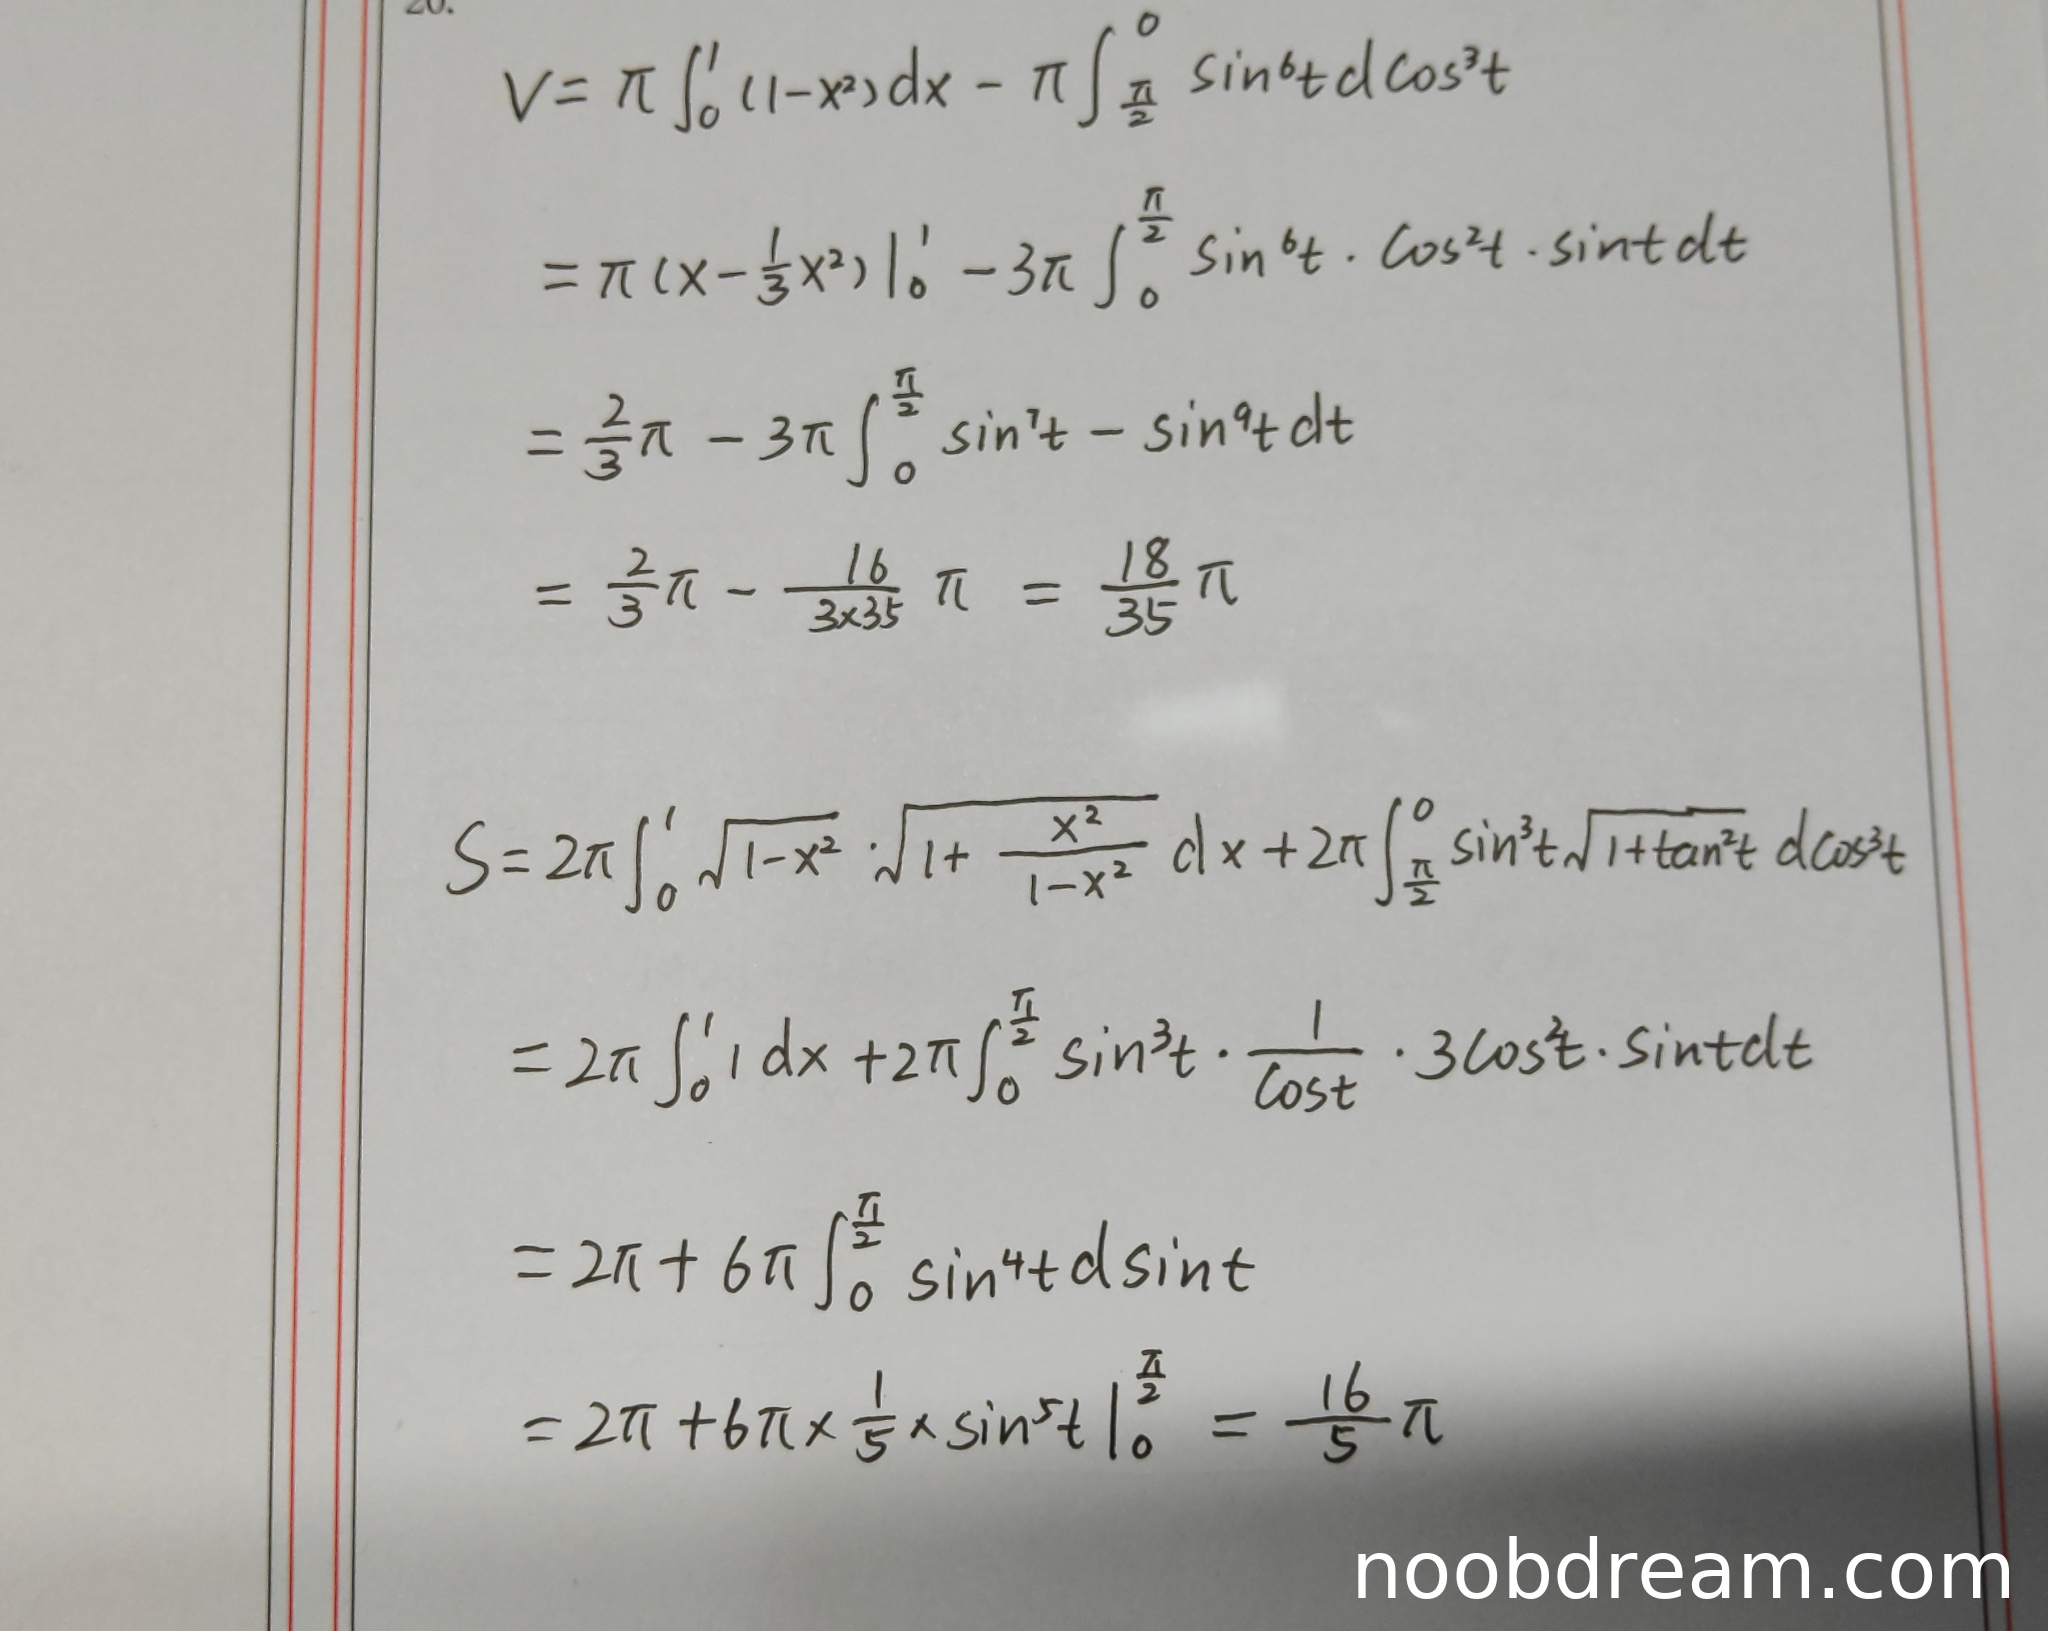 20.
V = π∫₀¹ (1-x²)dx - π∫_{π/2}^{0} sin⁶t dcos³t
= π(x-1/3x²)|₀¹ - 3π∫₀^{π/2} sin⁶t · cos²t · sint dt
= 2/3π - 3π∫₀^{π/2} sin⁷t - sin⁹t dt
= 2/3π - 16/(3×35) π = 18/35 π
S = 2π∫₀¹ √(1-x²) · √(1+ x²/(1-x²)) dx + 2π∫_{π/2}^{0} sin³t √(1+tan²t) dcos³t
= 2π∫₀¹ 1 dx + 2π∫₀^{π/2} sin³t · 1/cost · 3cos²t · sint dt
= 2π + 6π∫₀^{π/2} sin⁴t dsint
= 2π + 6π × 1/5 × sin⁵t|₀^{π/2} = 16/5 π
noobdream.com